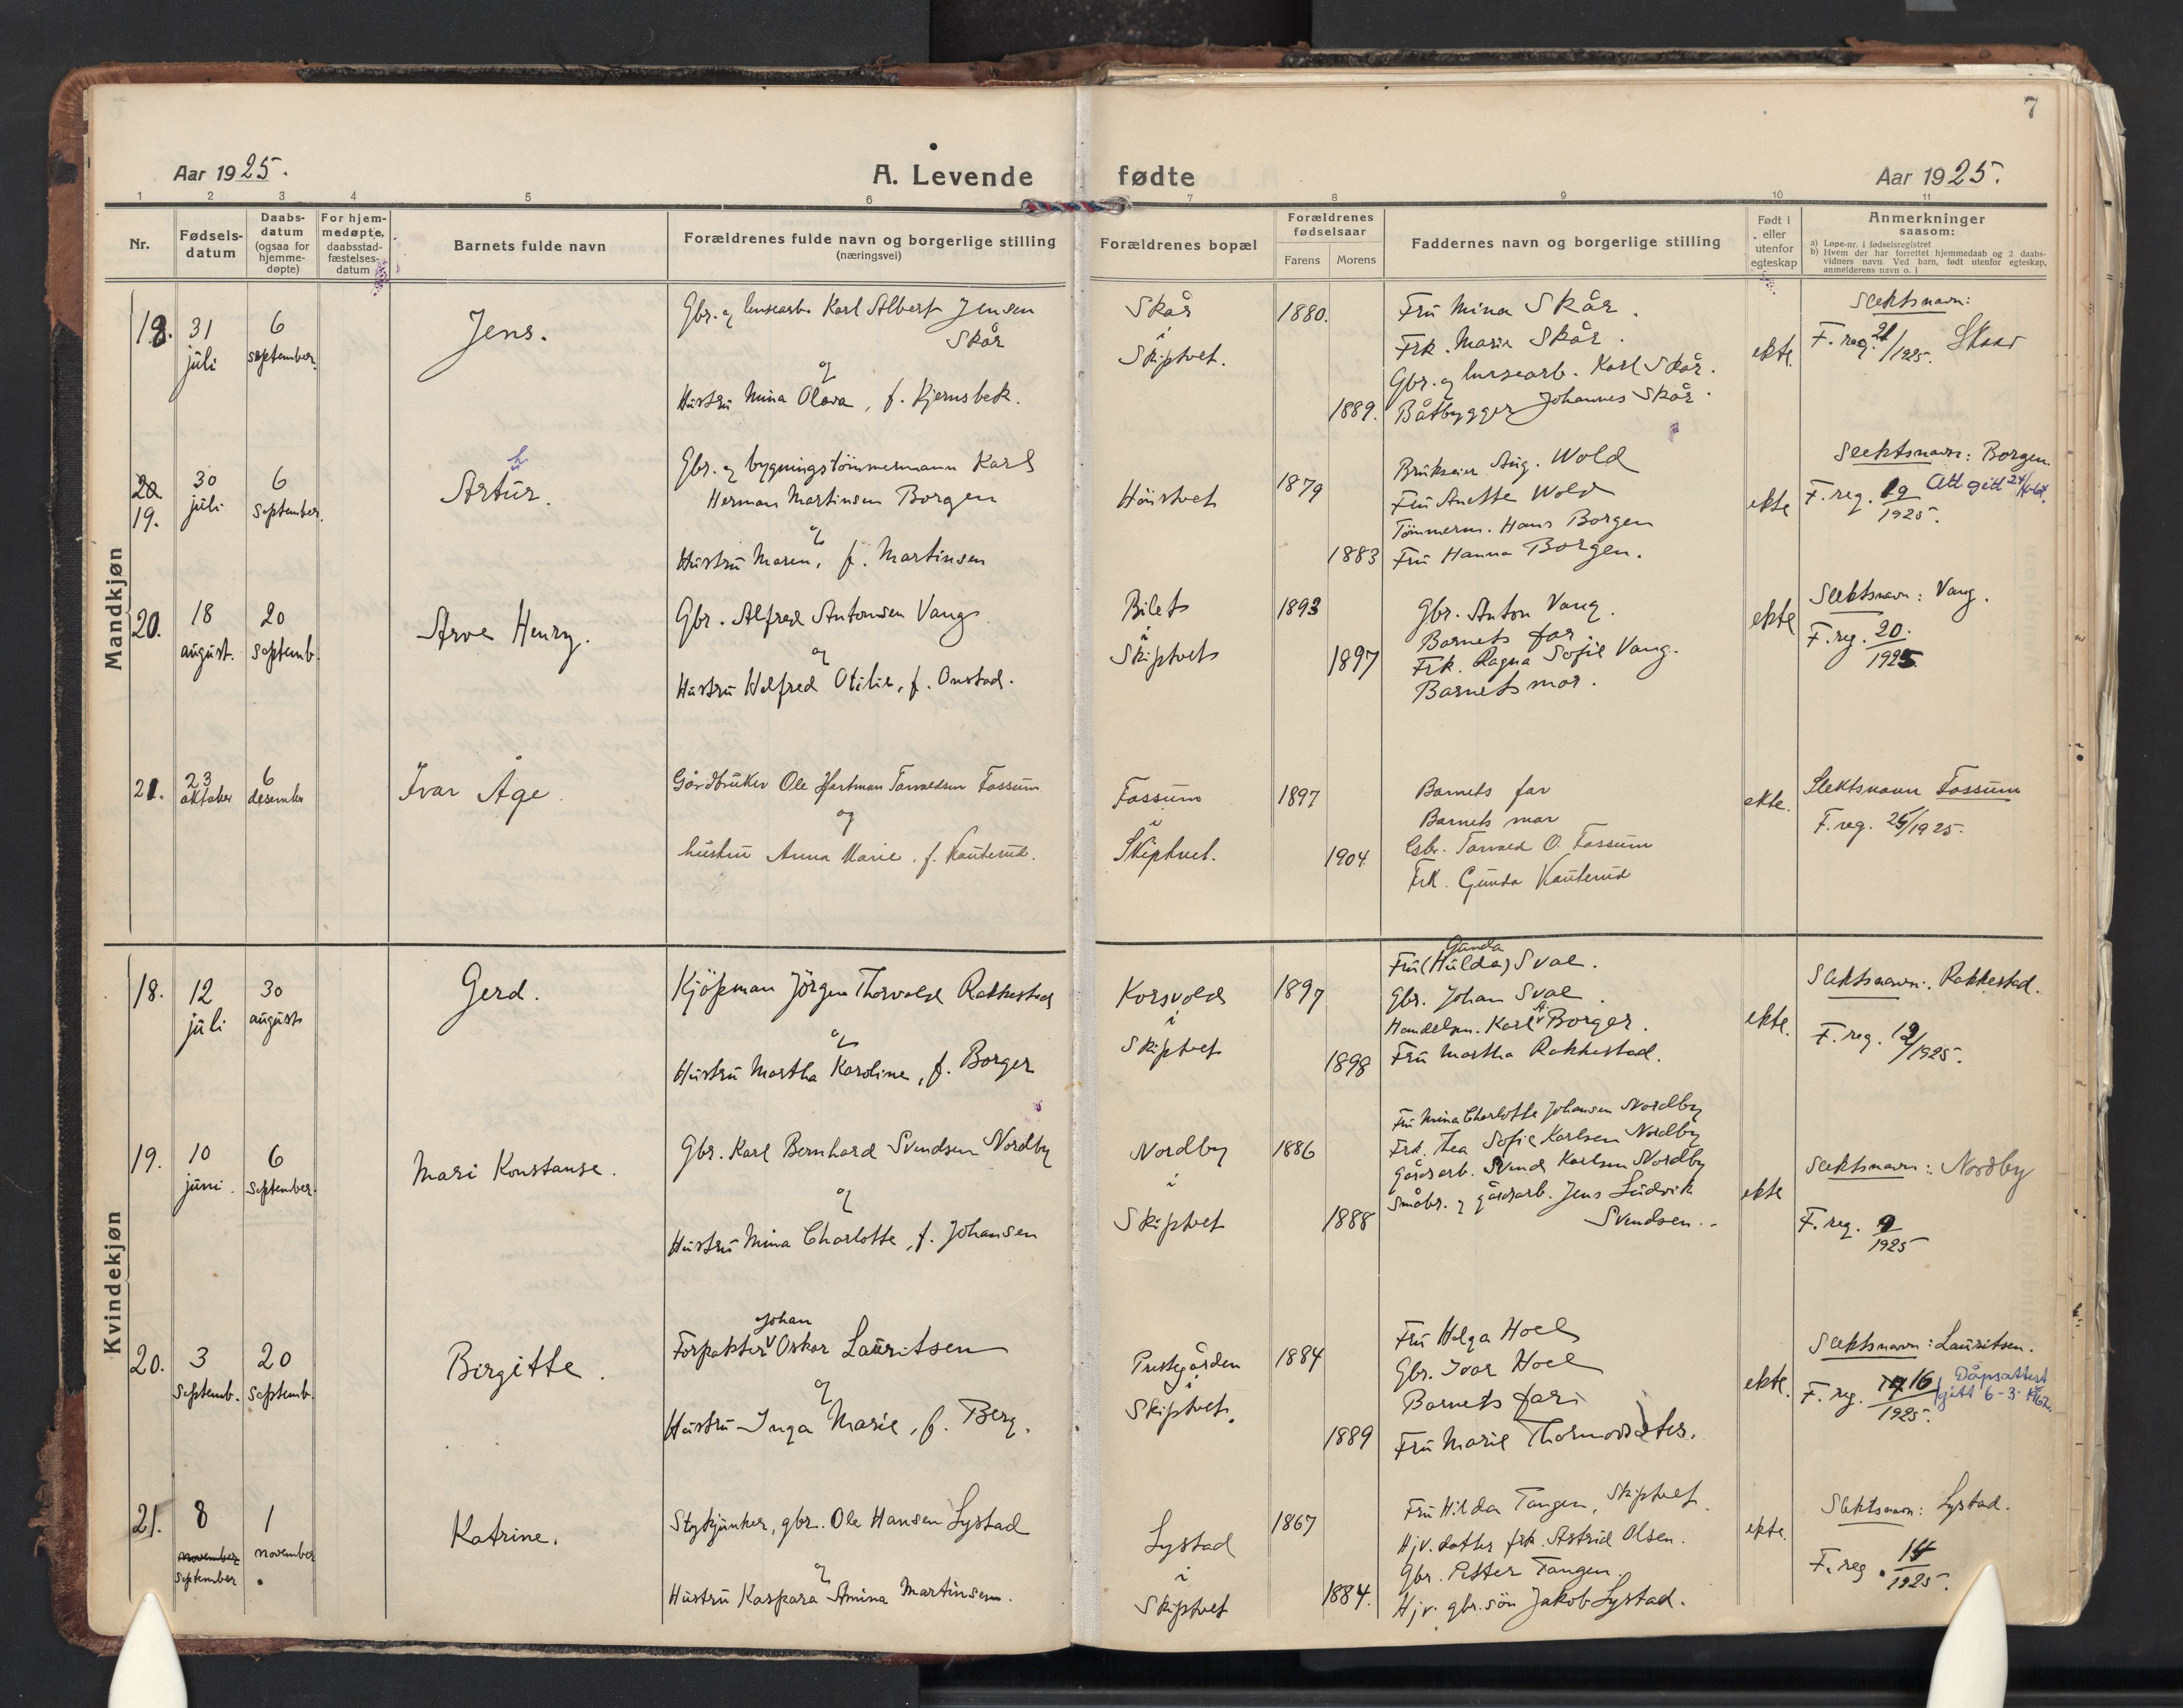 7
Aar 1925.
A. Levende fødte
Aar 1925.
1 2 3 4 5 6 7 8 9 10 11
Nr.
Fødsels-
datum
Daabs-
datum
(ogsaa for
hjemme-
døpte)
For hjem-
medøpte,
daabsstad-
fæstelses-
datum
Barnets fulde navn
Forældrenes fulde navn og borgerlige stilling
(næringsvei)
Forældrenes bopæl
Forældrenes
fødselsaar
Farens Morens
Faddernes navn og borgerlige stilling
Født i
eller
utenfor
egteskap
Anmerkninger
saasom:
a) Løpe-nr. i fødselsregistret
b) Hvem der har forrettet hjemmedaab og 2 daabs-
vidners navn. Ved barn, født utenfor egteskap,
anmelderens navn o. l
Mandkjøn
18.
31
juli
6
september.
Jens.
Gbr. og brusearb. Karl Albert Jensen
Skår
og
Hustru Mina Olava, f. Kjernsbek.
Skår
i
Skiptvet.
1880.
1889.
Frü Mina Skår.
Frk. Maria Skår.
Gbr. og brusearb. Karl Skår.
Båtbygger Johannes Skår.
ekte.
Slektsnavn:
Skaar
F. reg. 21/1925.
20.
19.
30
juli
6
September.
h
Artur.
Gbr. og bygningstömmermann Karl
Herman Martinsen Borgen
og
Hustru Maren, f. Martinsen
Höistvet
1879
1883
Brukseier Aug. Wold
Frü Anette Wold
Tømmerm. Hans Borgen
Frü Hanna Borgen.
ekte
Slektsnavn: Borgen.
F. reg. 19
1925.
Att gitt
20.
18
august.
20
Septemb.
Arve Henry.
Gbr. Alfred Antonsen Vang
og
Hustru Helfred Otilie, f. Onstad.
Bilet
i
Skiptvet
1893
1897
Gbr. Anton Vang.
Barnets far
Frk. Ragna Sofie Vang.
Barnets mor.
ekte
Slektsnavn: Vang.
F. reg. 20.
1925
21.
23
oktober
6
desember
Ivar Åge.
Gårdbruker Ole Hartman Torvaldsen Fossum
og
hustru Anna Marie, f. Kauterud.
Fossum
i
Skiptvet.
1897
1904.
Barnets far
Barnets mor
Gbr. Torvald O. Fossum
Frk. Gunda Kauterud
ekte.
Slektsnavn Fossum
F. reg. 25/1925.
Kvindekjøn
18.
12
juli
30
august
Gerd.
Kjöpman Jörgen Thorvald Rakkestad
og
Hustru Martha Karoline, f. Borger
Korsvold
i
Skiptvet
1897
1898
Gunda
Frü (Hulda) Sval.
Gbr. Johan Sval.
Handelsm. Karl A. Borger.
Frü Martha Rakkestad.
ekte.
Slektsnavn: Rakkestad.
F. reg. 12/1925.
19.
10
juni.
6
September.
Mari Konstanse.
Gbr. Karl Bernhard Svendsen Nordby
og
Hustru Mina Charlotte, f. Johansen
Nordby
i
Skiptvet
1886
1888
Frü Mina Charlotte Johansen Nordby
Frk. Thea Sofie Karlsen Nordby
Gårdsarb. Svend Karlsen Nordby
Småbr. og gårdsarb. Jens Ludvik
Svendsen.
ekte
Slektsnavn: Nordby
F. reg. 9
1925
20.
3
Septemb.
20
Septemb.
Birgitte.
Johan
Forpakter Oskar Lauritsen
og
Hustru Inga Marie, f. Berg.
Prestegården
i
Skiptvet.
1884
1889
Frü Helga Hoel
Gbr. Ivar Hoel
Barnets far
Frü Marie Thormodsæter.
ekte.
Slektsnavn: Lauritsen.
F. reg. 16
1925.
Dåpsattest
gitt 6-3-1962.
21.
8
november
September
1
november
Katrine.
Stykjunker, gbr. Ole Hansen Lystad
og
Hustru Kaspara Amina Martinsen.
Lystad
i
Skiptvet
1867
1884.
Frü Hilda Tangen, Skiptvet.
Hjv. datter frk. Astrid Olsen.
Gbr. Petter Tangen.
Hjv. gbr. sön Jakob Lystad.
ekte.
Slektsnavn: Lystad.
F. reg. 14
1925.